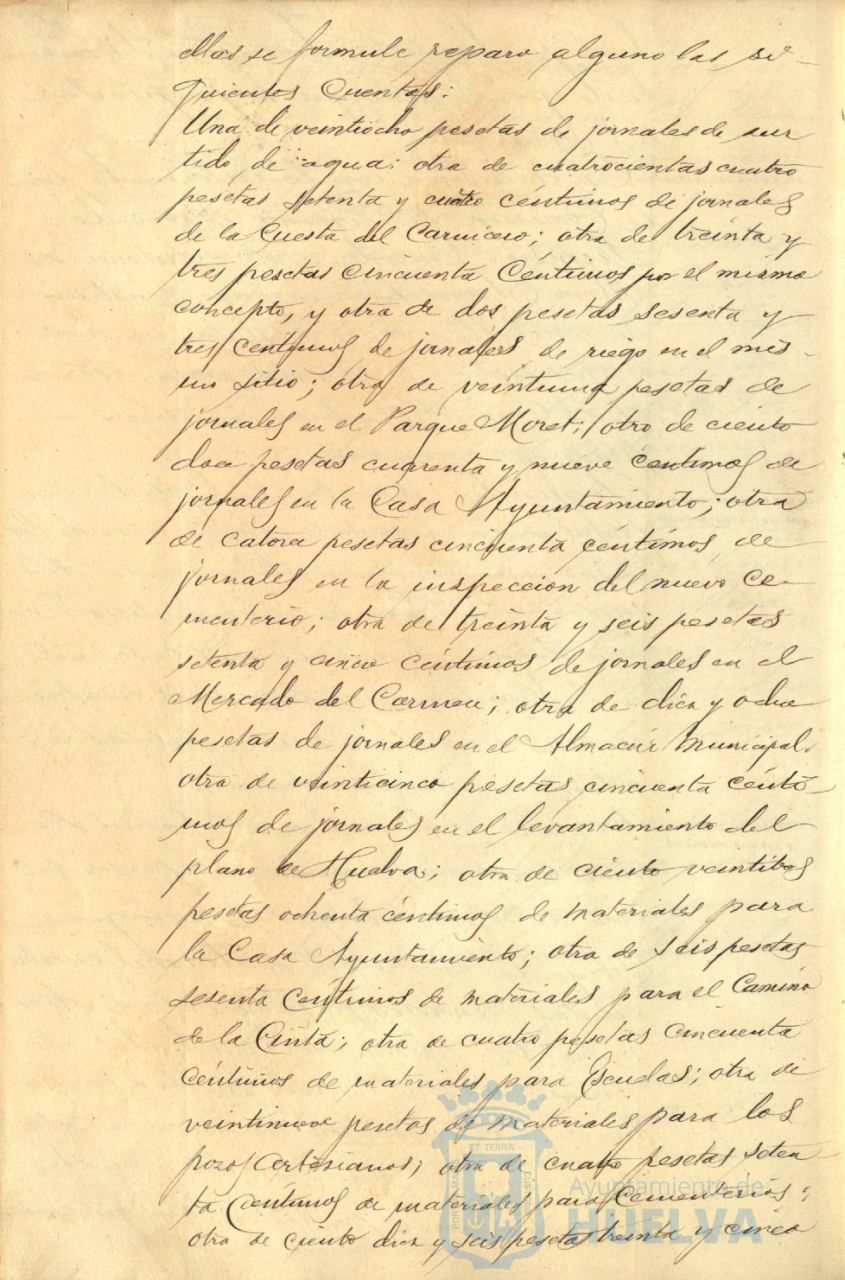 ellas se formule reparo alguno las si-
guientes Cuentas:
Una de veintiocho pesetas de jornales de sur
tido de agua: otra de cuatrocientas cuatro
pesetas setenta y cuatro céntimos de jornales
de la Cuesta del Carnicero; otra de treinta y
tres pesetas cincuenta Céntimos por el mismo
concepto, y otra de dos pesetas sesenta y
tres Céntimos de jornales de riego en el mis-
mo sitio; otra de veintiuna pesetas de
jornales en el Parque Moret; otro de ciento
doce pesetas cuarenta y nueve Céntimos de
jornales en la Casa Ayuntamiento; otra
de catorce pesetas cincuenta céntimos de
jornales en la inspeccion del nuevo Ce-
menterio; otra de treinta y seis pesetas
setenta y cinco céntimos de jornales en el
Mercado del Carmen; otra de diez y ocho
pesetas de jornales en el Almacén Municipal.
otra de veinticinco pesetas cincuenta cénti-
mos de jornales en el levantamiento del
plano de Huelva; otra de ciento veintitres
pesetas ochenta céntimos de materiales para
la Casa Ayuntamiento; otra de seis pesetas
sesenta Céntimos de materiales para el Camino
de la Cinta; otra de cuatro pesetas cincuenta
céntimos de materiales para Escuelas; otra de
veintinueve pesetas de materiales para los
pozos Artesianos; otra de cuatro pesetas seten
ta Céntimos de materiales para Cementerios;
otra de ciento diez y seis pesetas treinta y cinco
ET TERRÆ
Ayuntamiento de
HUELVA